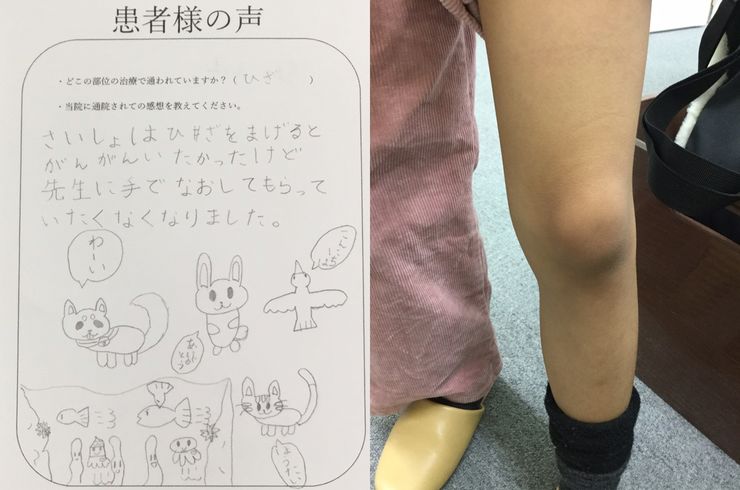 患者様の声
・どこの部位の治療で通われていますか？（ひざ）
・当院に通院されての感想を教えてください。
さいしょはひざをまげると
がんがんいたかったけど
先生に手でなおしてもらって
いたくなくなりました。
わーい